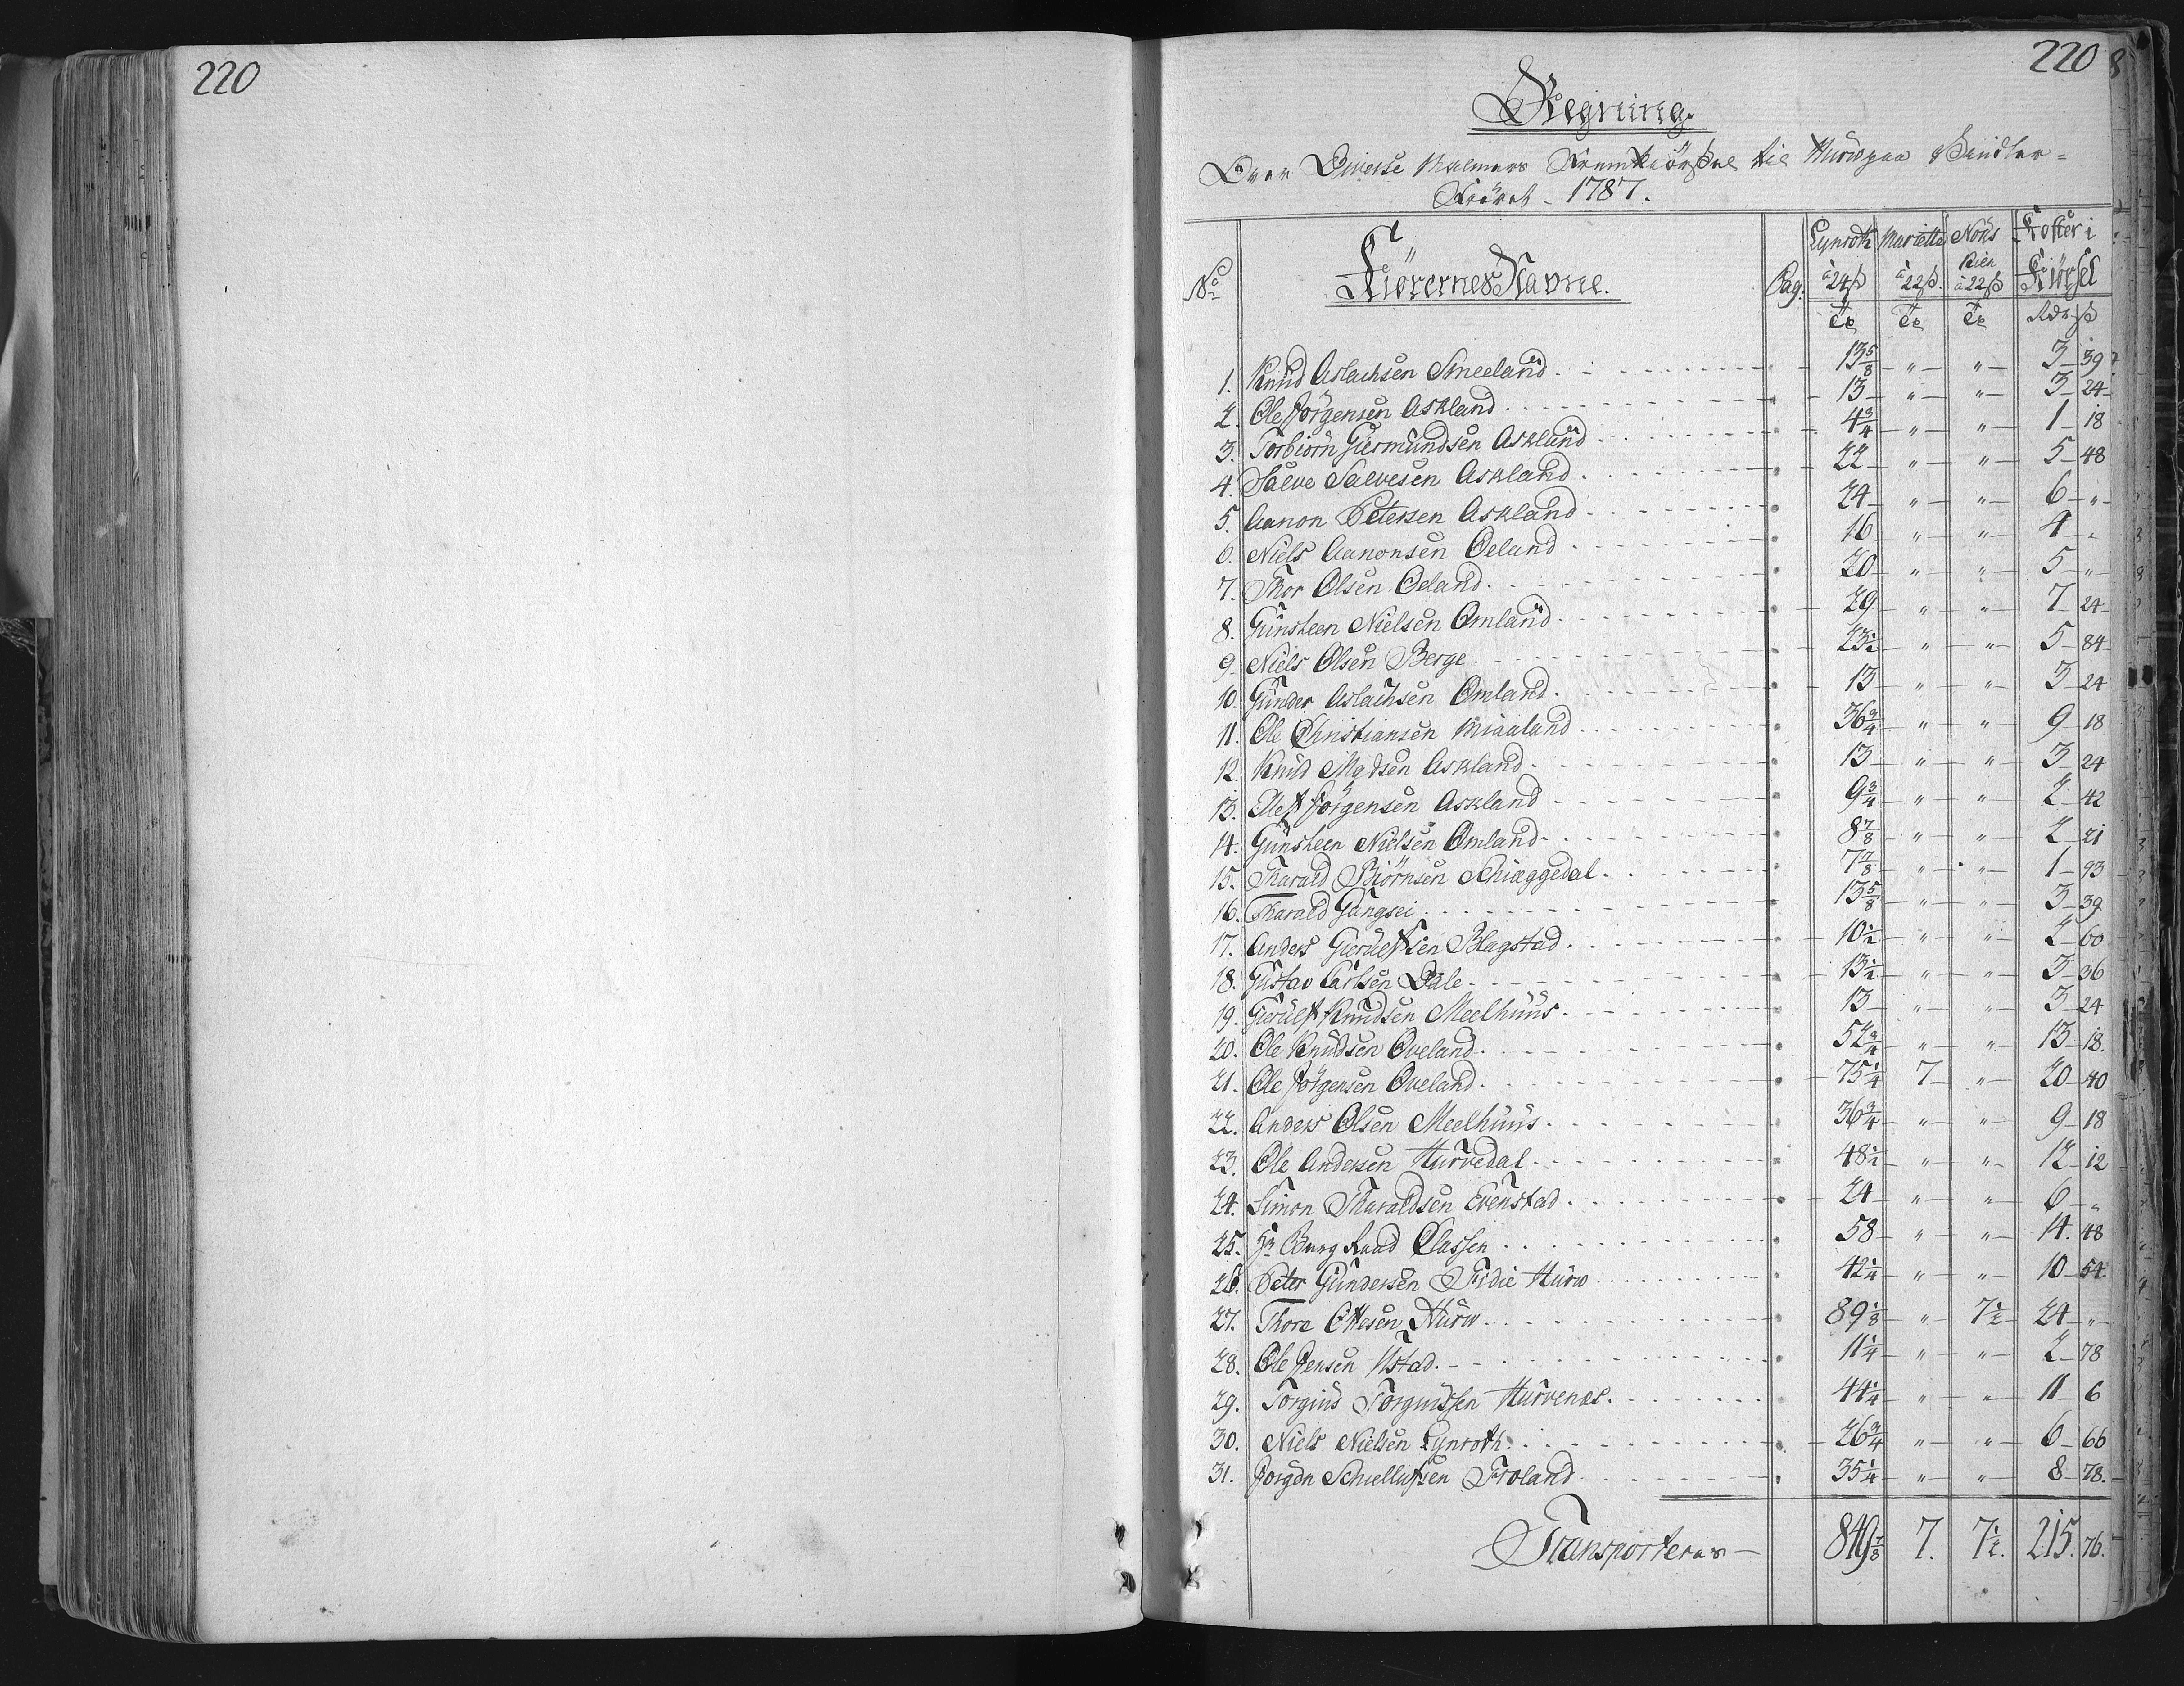 220
220
Regning
Over Diverse Malmers Fremkiørsel til Hurv paa Vinter-
Føret - 1787.
No
Kiørernes Navne.
Pag.
Lynroth à 24ß Tr
Marietta à 22ß. Tr
Nøÿs Kien à 22ß Tr
Koster i Kiørsel Rdr ß
1. Knud Aslachsen Smeeland - 13 5/8 " " 3 39
2. Ole Jørgensen Askland - 13 " " 3 24
3. Torbiørn Giermundsen Askland - 4 3/4 " " 1 18
4. Salve Salvesen Askland - 22 " " 5 48
5. Aanon Petersen Askland - 24 " " 6 "
6. Niels Aanonsen Oeland - 16 " " 4 "
7. Thor Olsen Oeland - 20 " " 5 "
8. Gunsteen Nielsen Omland - 29 " " 7 24
9. Niels Olsen Berge - 23 1/2 " " 5 84
10. Gunder Aslachsen Omland - 13 " " 3 24
11. Ole Christiansen Miaaland - 36 3/4 " " 9 18
12. Knud Madsen Askland - 13 " " 3 24
13. Ellef Jørgensen Askland - 9 3/4 " " 2 42
14. Gunsteen Nielsen Omland - 8 7/8 " " 2 21
15. Tharald Biørnsen Schiæggedal - 7 7/8 " " 1 93
16. Tharald Gangsei - 13 5/8 " " 3 39
17. Anders Gierulfsen Blagstad - 10 1/2 " " 2 60
18. Gustav Carlsen Dale - 13 1/2 " " 3 36
19. Gierulf Knudsen Meelhuus - 13 " " 3 24
20. Ole Knudsen Øveland - 52 3/4 " " 13 18.
21. Ole Jørgensen Øveland - 75 1/4 7 " 20 40
22. Anders Olsen Meelhuus - 36 3/4 " " 9 18
23. Ole Andersen Hurvedal - 48 1/2 " " 12 12
24. Simon Tharaldsen Evenstad - 24 " " 6 "
25. Hr Burg Raad Classen - 58 " " 14. 48
26. Peter Gundersen Sidie Hurv - 42 1/4 " " 10 54
27. Thore Ottesen Hurv - 89 1/8 " 7 1/2 24 "
28. Ole Jensen Ustad - 11 1/4 " " 2 78
29. Torgius Torgiussen Hurvenes - 44 1/4 " " 11 6
30. Niels Nielsen Lynroth - 26 3/4 " " 6 66
31. Jørgen Schiellufsen Froland - 35 1/4 " " 8 78.
Transporteres - 849 7/8 7. 7 1/2. 215. 76.